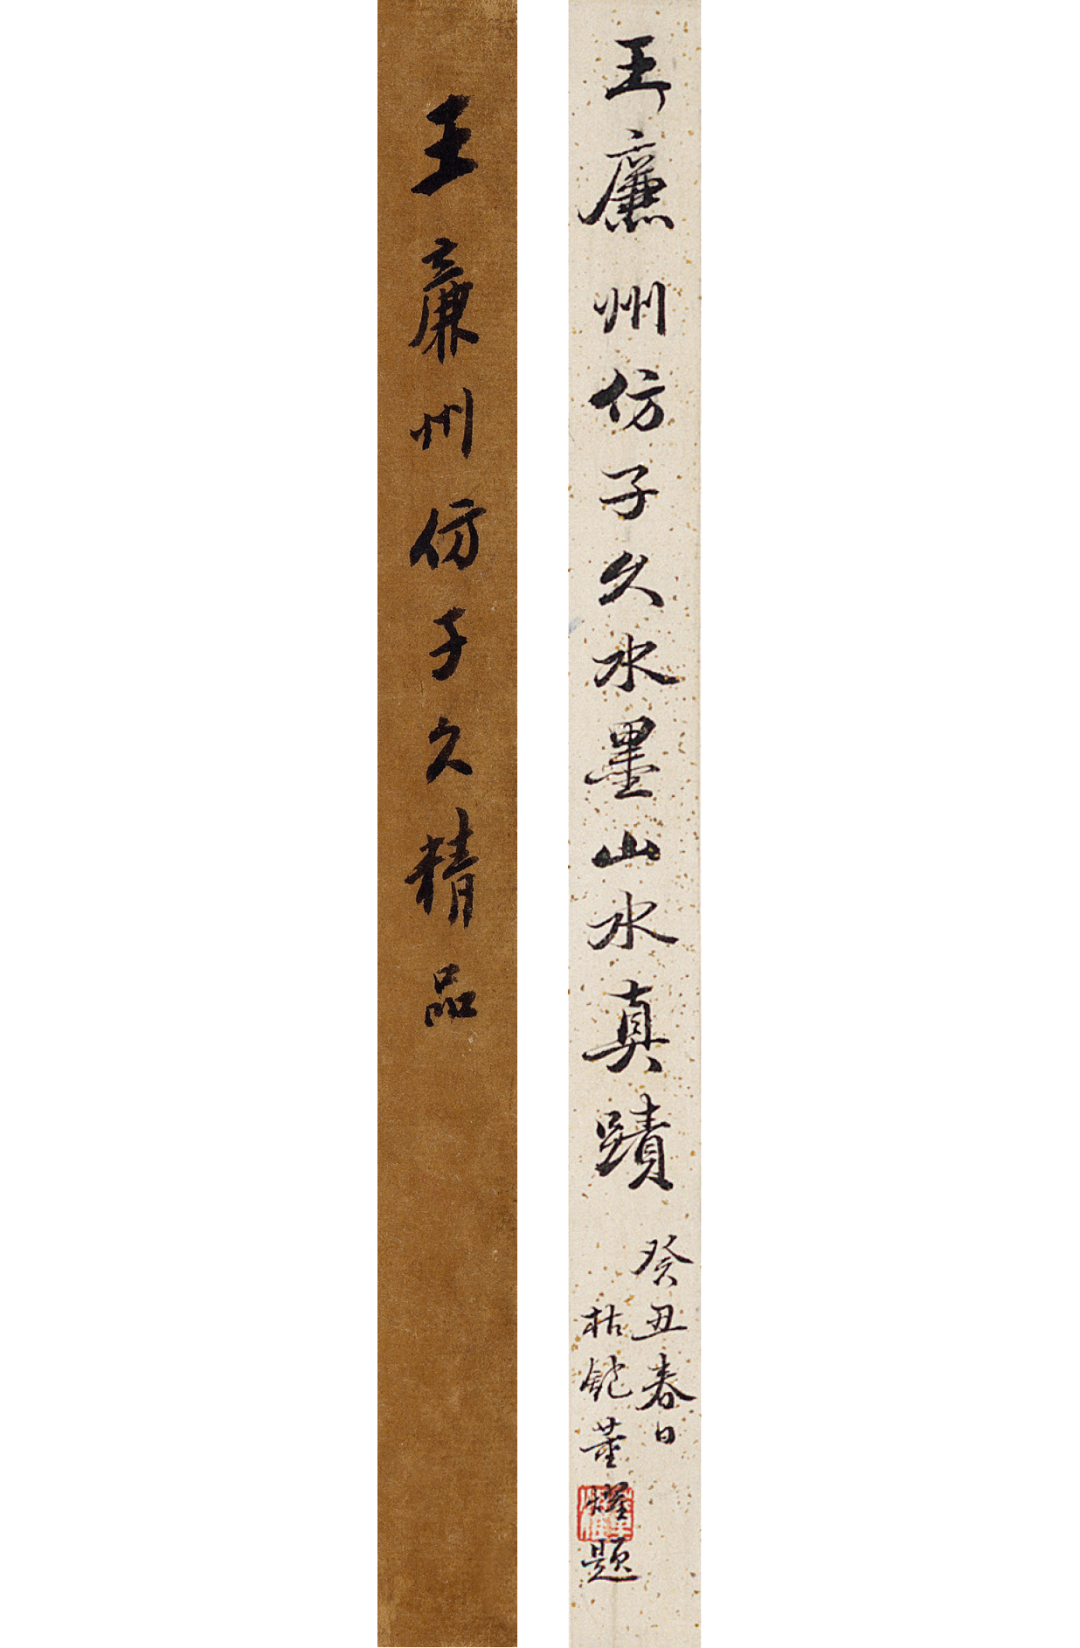 王廉州仿子久水墨山水真蹟
癸丑春日
枯匏董燿題
王廉州仿子久精品